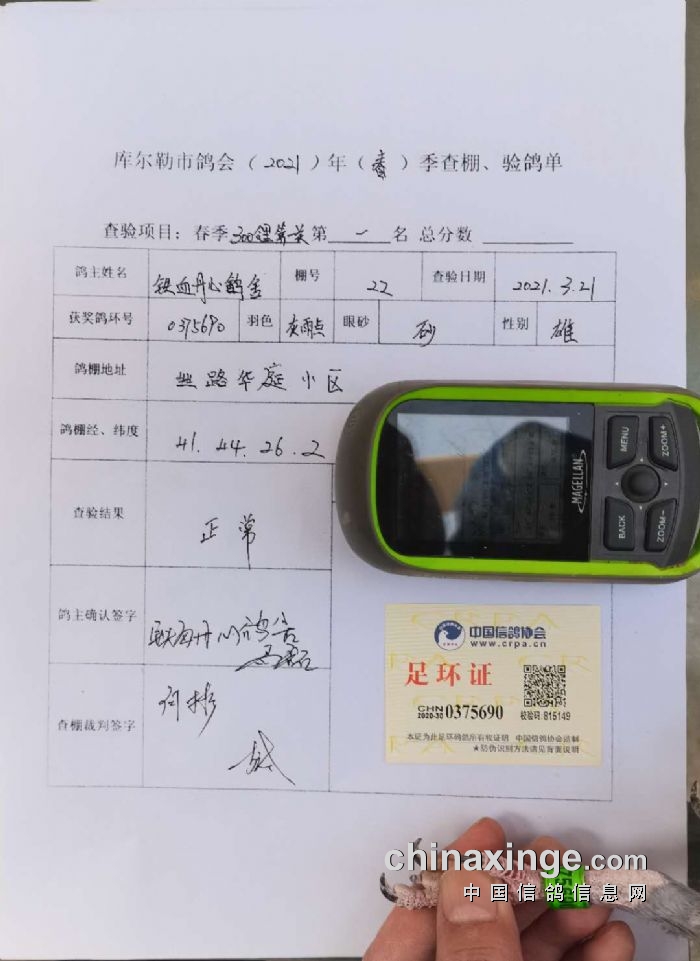 库尔勒市鸽会（2021）年（春）季查棚、验鸽单
查验项目：春季300 第一名 总分数
鸽主姓名 铁血丹心鸽舍 棚号 22 查验日期 2021.3.21
获奖鸽环号 0375690 羽色 灰雨点 眼砂 砂 性别 雄
鸽棚地址 丝路华庭小区
鸽棚经、纬度 41.44.26.2
查验结果 正常
鸽主确认签字 铁血丹心鸽舍
查棚裁判签字
MAGELLAN
MENU
ZOOM+
BACK
ZOOM−
中国信鸽协会
www.crpa.cn
足环证
CHN
2020-30 0375690
校验码: 815149
本证为此足环确鸽所有权证明 中国信鸽协会监制
★防伪识别方法请见背面说明
chinaxinge.com
中国信鸽信息网